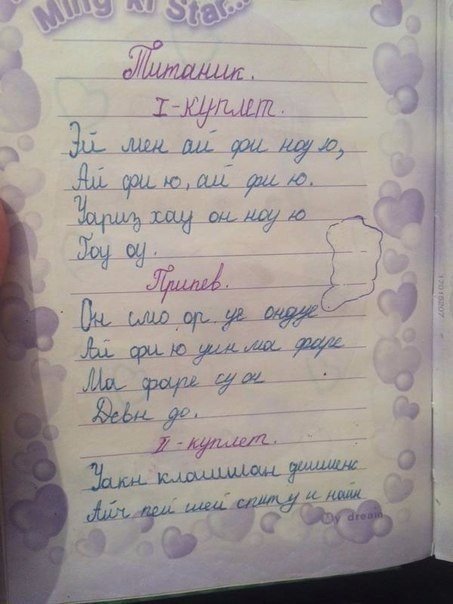 Ming xi Star...
Титаник.
I-куплет.
Эй мен ай фи ноу ю,
Ай фи ю, ай фи ю.
Уариз хау он ноу ю
Гоу оу.
Припев.
Он смо ор уе ондуе
Ай фи ю уин ма фаре
Ма фаре су он
Девн до.
II-куплет.
Уакн клашшан дешиенс
Айч пей шей спиту и найн
My dream